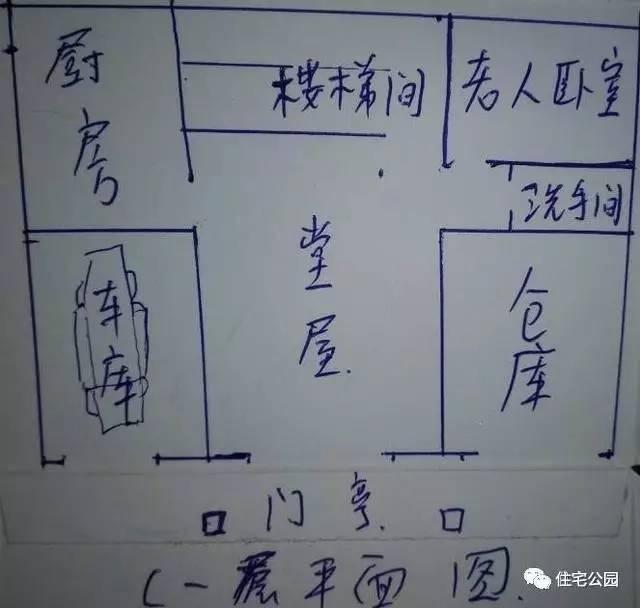 厨房
楼梯间
老人卧室
洗手间
堂屋
车库
仓库
门亭
(一层平面图
住宅公园